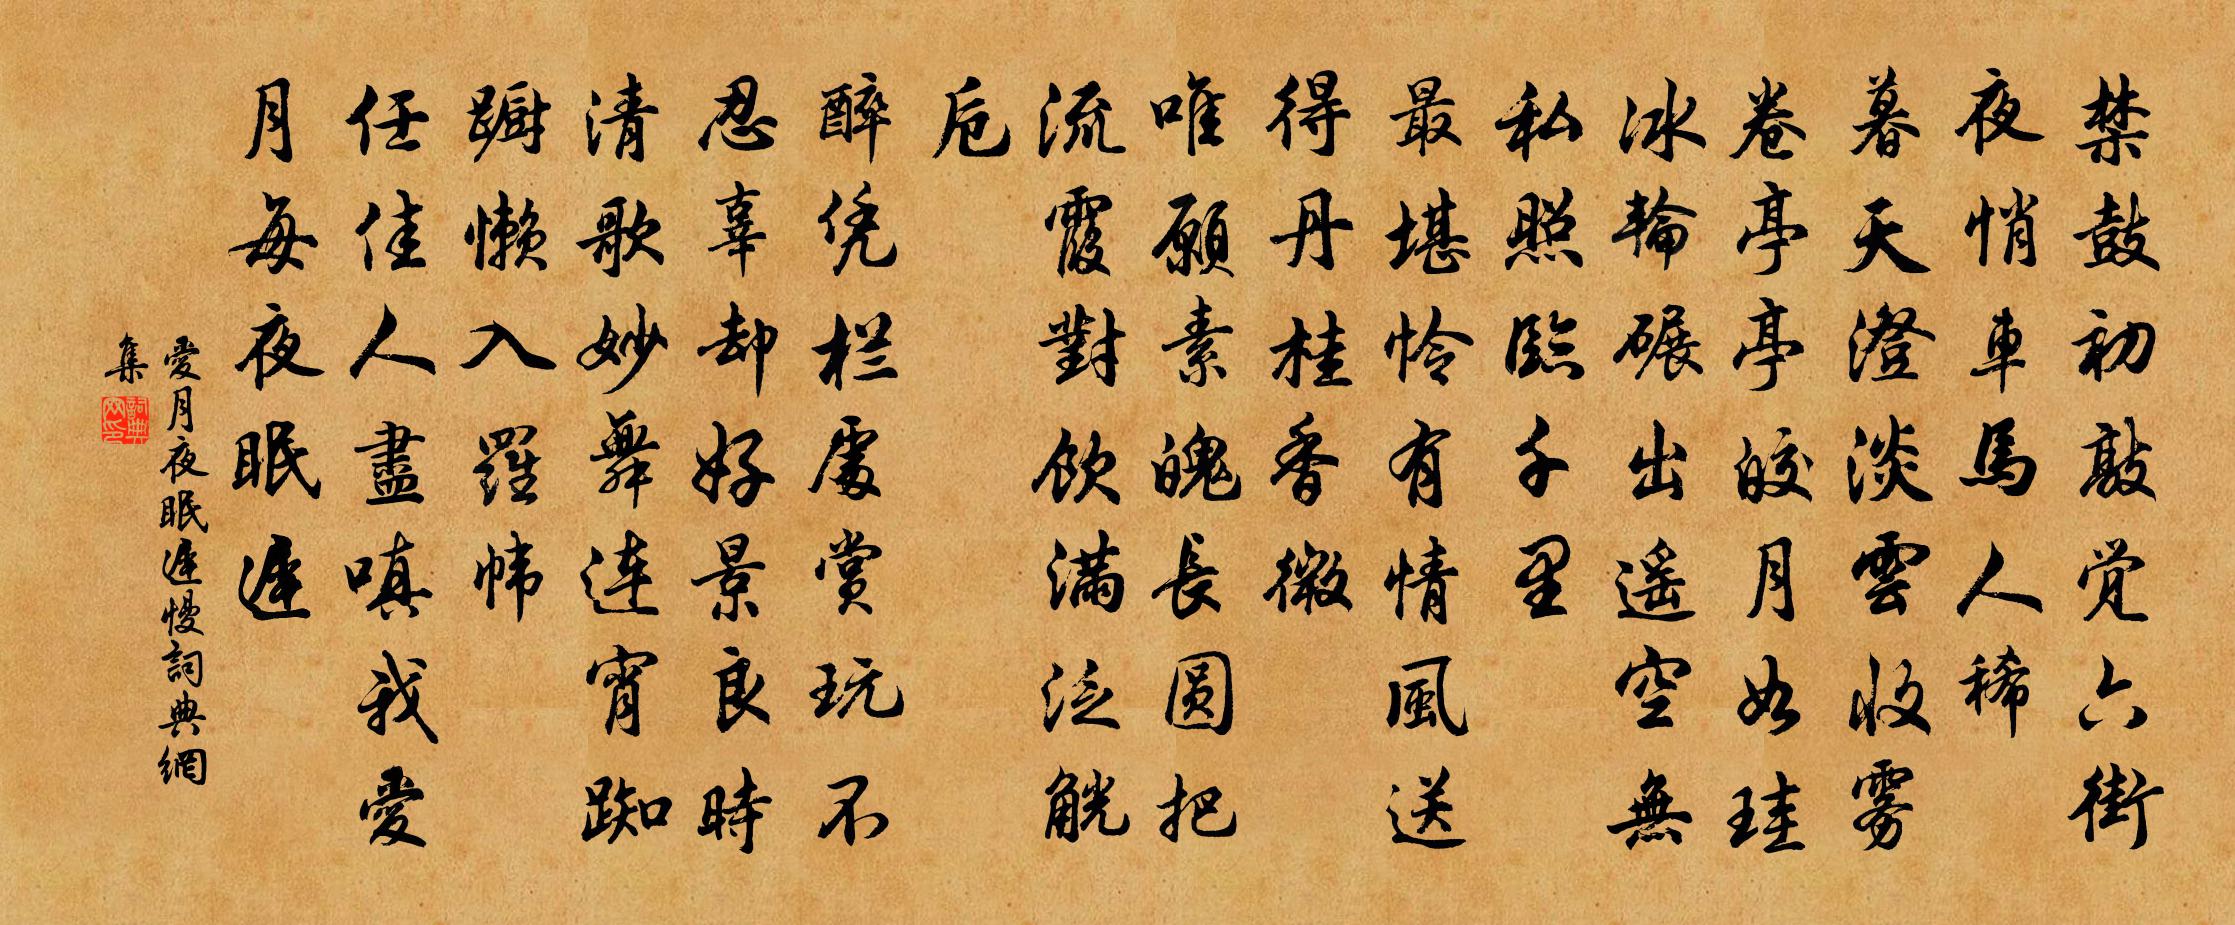 禁鼓初敲觉六街
夜悄車馬人稀
暮天澄淡雲收雾
卷亭亭皎月如珪
冰輪碾出遥空無
私照臨千里
最堪怜有情風送
得丹桂香微
唯願素魄長圆把
流霞對飲满泛觥
卮
醉凭栏處赏玩不
忍辜却好景良時
清歌妙舞连宵踟
蹰懒入羅帏
任佳人盡嗔我愛
月每夜眠遲
愛月夜眠遲慢詞典網
集
詞典网印